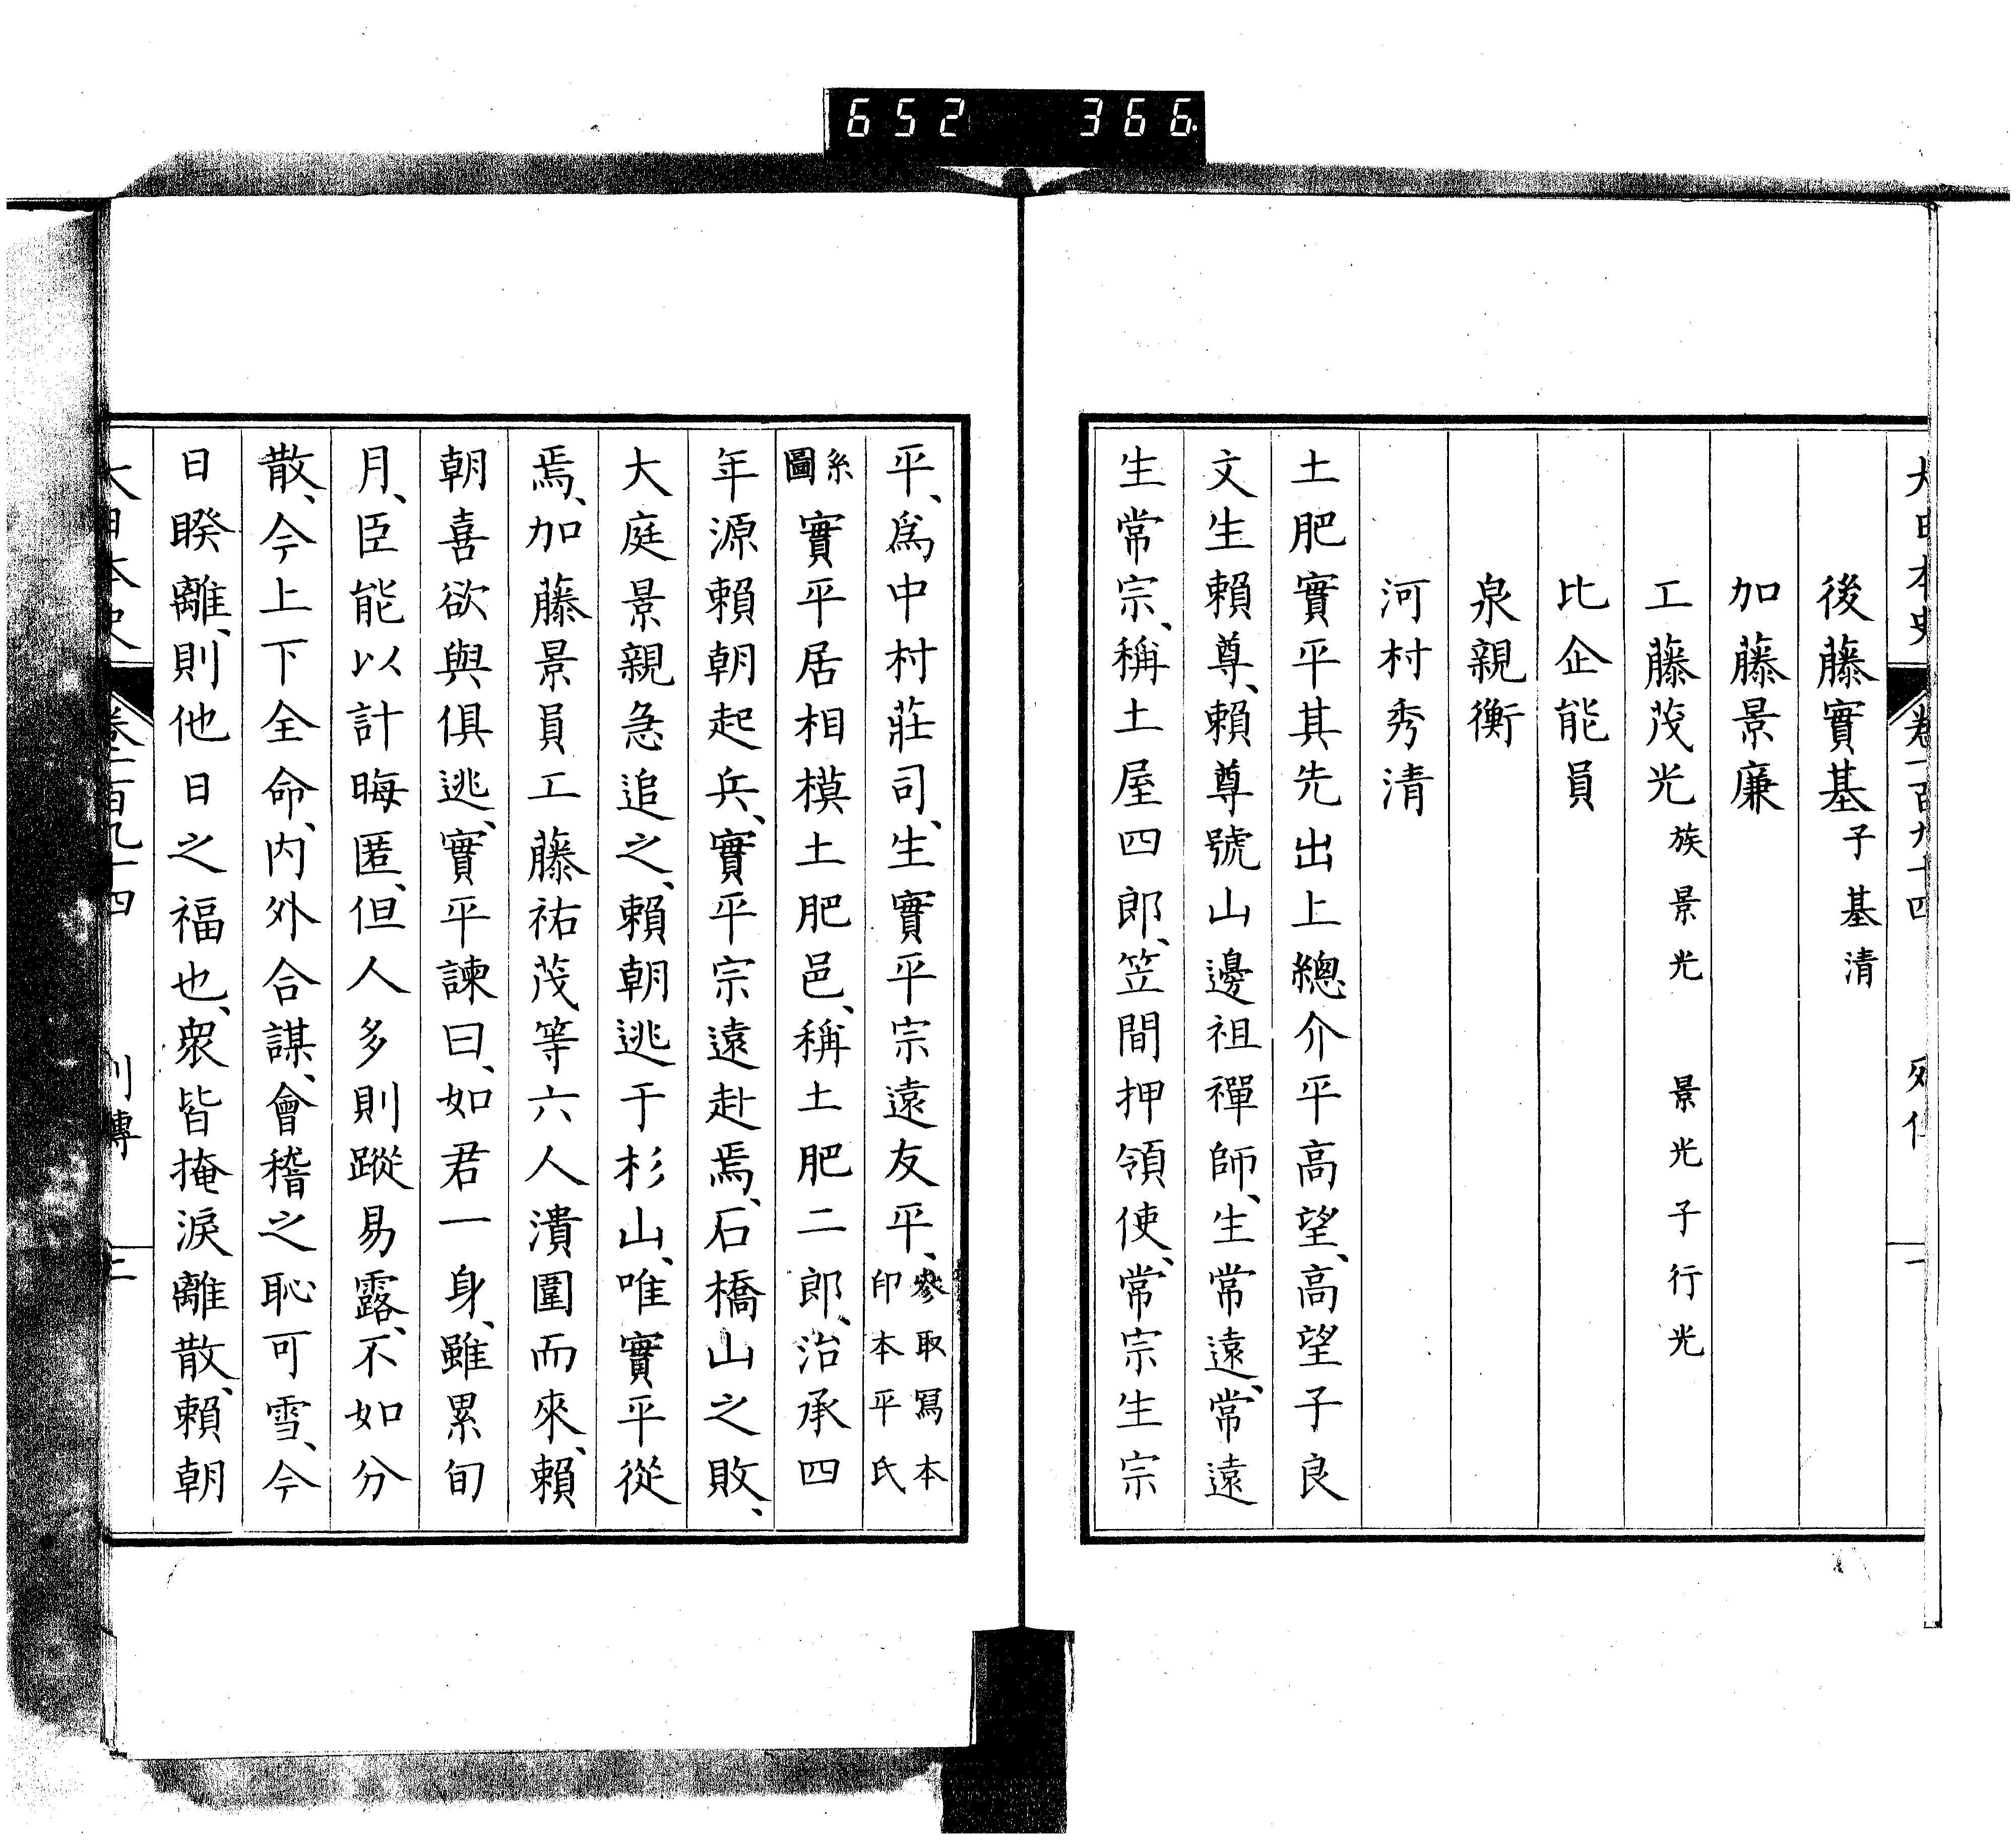 652 366
大日本史 卷一百九十四 列傳 一
後藤實基 子基清
加藤景廉
工藤茂光 族景光 景光子行光
比企能員
泉親衡
河村秀清
土肥實平其先出上總介平高望、高望子良
文生賴尊、賴尊號山邊祖禪師、生常遠、常遠
生常宗、稱土屋四郎、笠間押領使、常宗生宗
平、爲中村莊司、生實平宗遠友平、參取冩本印本平氏
系圖實平居相模土肥邑、稱土肥二郎、治承四
年源賴朝起兵、實平宗遠赴焉、石橋山之敗、
大庭景親急追之、賴朝逃于杉山、唯實平從
焉、加藤景員工藤祐茂等六人潰圍而來、賴
朝喜欲與俱逃、實平諫曰、如君一身、雖累旬
月、臣能以計晦匿、但人多則蹤易露、不如分
散、今上下全命、内外合謀、會稽之恥可雪、今
日睽離、則他日之福也、衆皆掩淚離散、賴朝
大日本史 卷一百九十四 列傳 二